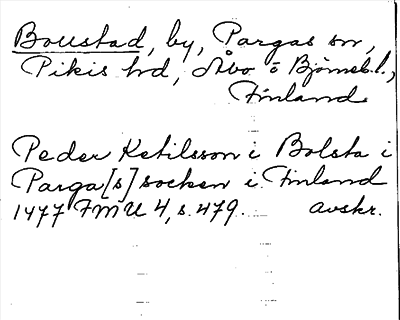 Boustad, by, Pargas sn,
Pikis hd, Åbo o Björneb. l.,
Finland
Peder Ketilsson i Bolsta i
Parga[s] socken i Finland
1477 FMU 4, s. 479. avskr.